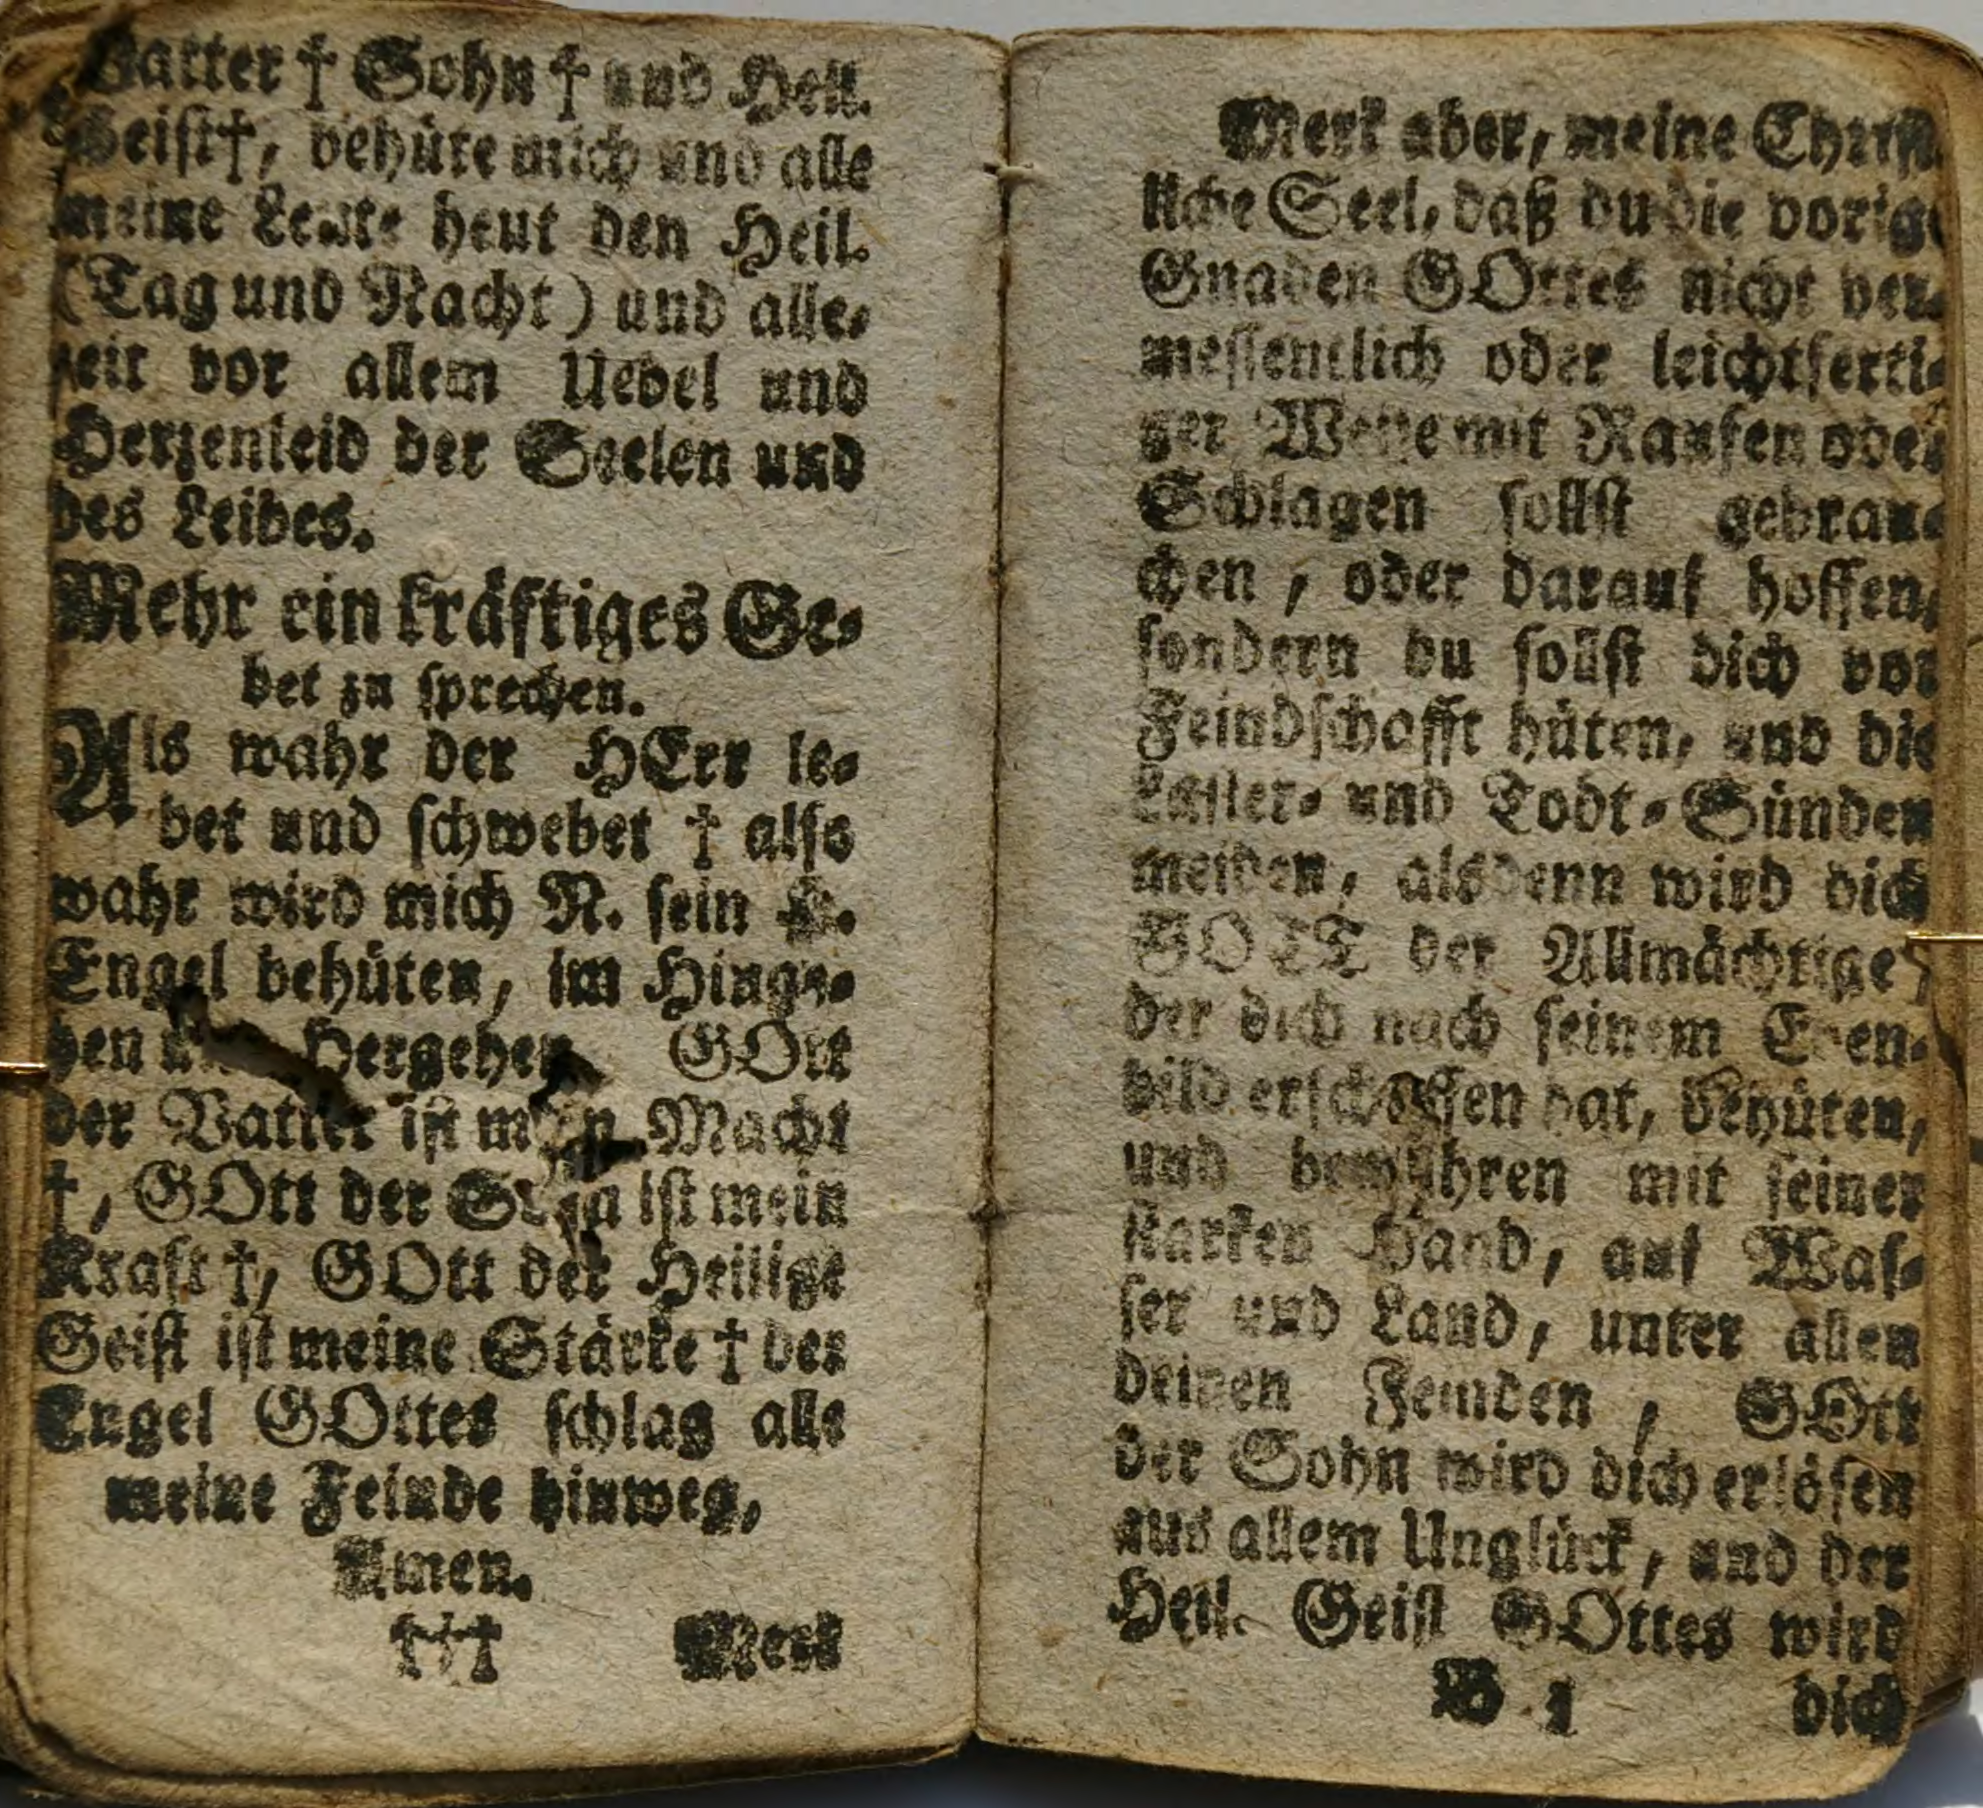 Vatter † Sohn † und Heil.
Geist†, behüte mich und alle
meine Leute heut den Heil.
(Tag und Nacht) und alle-
zeit vor allem Uebel und
Herzenleid der Seelen und
des Leibes.
Mehr ein kräftiges Ge-
bet zu sprechen.
Als wahr der HErr le-
bet und schwebet † also
wahr wird mich N. sein H.
Engel behüten, im Hinge-
hen und Hergehen GOtt
der Vatter ist mein Macht
†, GOtt der Sohn ist mein
Kraft †, GOtt der Heilige
Geist ist meine Stärke † der
Engel GOttes schlag alle
meine Feinde hinweg,
Amen.
††† Merk
Merk aber, meine Christ-
liche Seel, daß du die vorige
Gnaden GOttes nicht ver-
messentlich oder leichtferti-
ger Weise mit Raufen oder
Schlagen sollst gebrau-
chen, oder darauf hoffen,
sondern du sollst dich vor
Feindschafft hüten, und die
Laster- und Todt-Sünden
meiden, alsdenn wird dich
GOTT der Allmächtige,
der dich nach seinem Eben-
bild erschaffen hat, behüten,
und bewahren mit seiner
starken Hand, auf Was-
ser und Land, unter allen
deinen Feinden, GOtt
der Sohn wird dich erlösen
aus allem Unglück, und der
Heil. Geist GOttes wird
B 1 dich